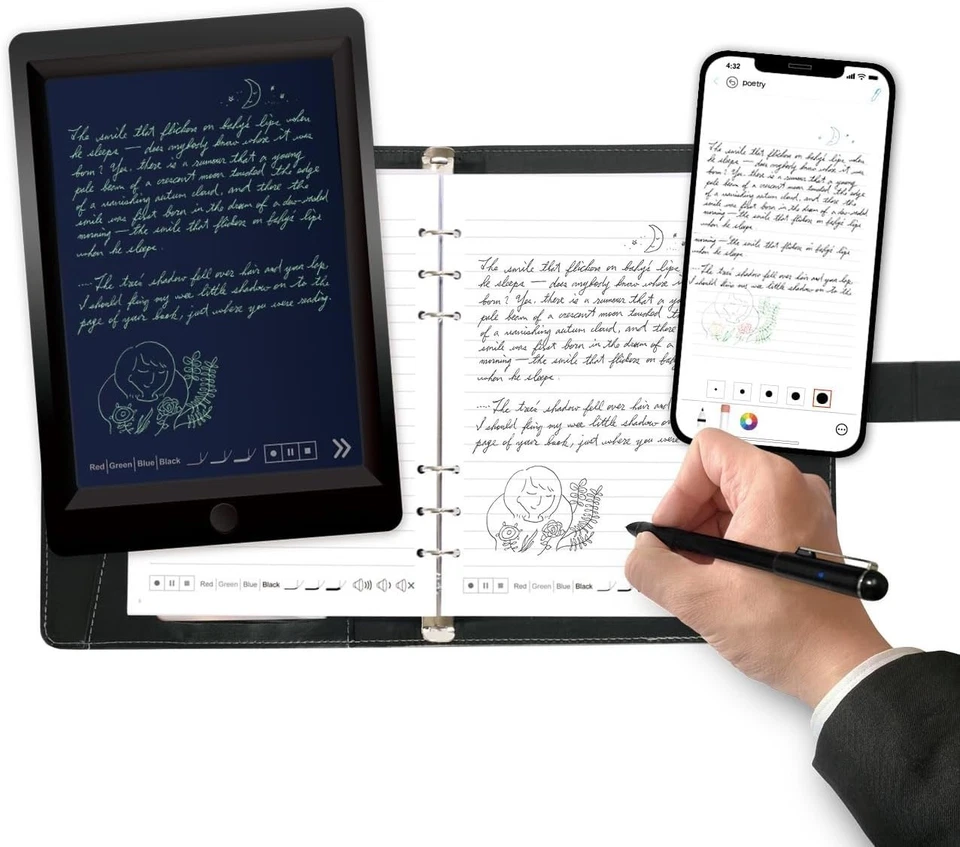 The smile that flickers on baby's lips when
he sleeps — does anybody know where it was
born? Yes, there is a rumour that a young
pale beam of a crescent moon touched the edge
of a vanishing autum cloud, and there the
smile was first born in the dream of a dew-washed
morning — the smile that flickers on baby's lips
when he sleeps.
....The tree's shadow fell over hair and your lap,
I should fling my wee little shadow on to the
page of your book, just where you were reading.
Red | Green | Blue | Black
The smile that flickers on baby's lips
he sleeps — does anybody know where it
born? Yes, there is a rumour that a
pale beam of a crescent moon touched
of a vanishing autum cloud, and there
smile was first born in the dream of a
morning — the smile that flickers on
when he sleeps.
....The tree's shadow fell over hair and
I should fling my wee little shadow
page of your book, just where you were
Red | Green | Blue | Black
Red | Green | Blue | Black
4:32
poetry
The smile that flickers on baby's lips when
he sleeps — does anybody know where it was
born? Yes, there is a rumour that a young
pale beam of a crescent moon touched the edge
of a vanishing autum cloud, and there the
smile was first born in the dream of a dew-washed
morning — the smile that flickers on baby's lips
when he sleeps.
morning — the smile that flickers on baby's lips
when he sleeps.
....The tree's shadow fell over hair and your lap,
I should fling my wee little shadow on to the